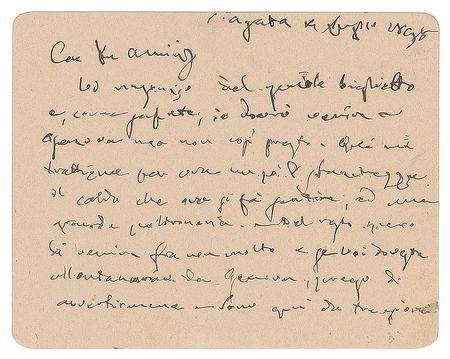 S. Agata Luglio 1898
Car
Vi ringrazio del gentile biglietto
e, come sapete, io dovrò venire a
Genova ma non così presto. Quì mi
trattiene per ora un pò di
il caldo che ora si fà sentire, ed una
grande poltroneria. Del resto spero
di venire fra non molto e se voi doveste
allontanarvi da Genova, prego di
avvertirmene - Sono quì da tre giorni